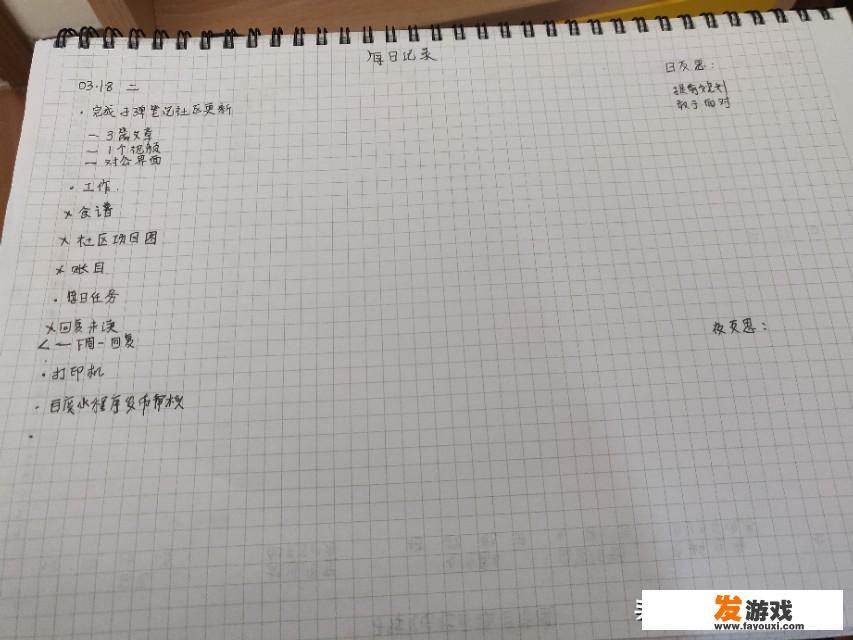 每日记录
03.18 二
· 完成子弹笔记社区更新
— 3篇文章
— 1个视频
— 对公界面
· 工作
× 食谱
× 社区项目图
× 账目
· 每日任务
× 回复未读
< — 下周一回复
· 打印机
· 百度小程序发布审核
·
日反思：
提前规划
敢于面对
夜反思：
发游戏
www.fayouxi.com